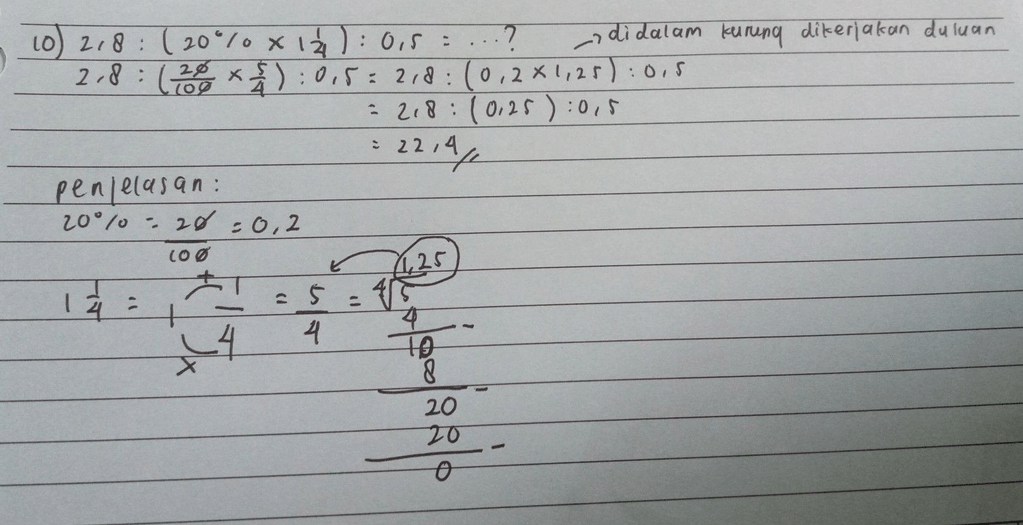 10) 2,8 : (20% x 1 1/4) : 0,5 = ...? → didalam kurung dikerjakan duluan
2,8 : (20/100 x 5/4) : 0,5 = 2,8 : (0,2 x 1,25) : 0,5
= 2,8 : (0,25) : 0,5
= 22,4 //
penjelasan :
20% = 20/100 = 0,2
1 1/4 = 1 + 1/4 x = 5/4 = 4√5 1,25
4 -
10
8 -
20
20 -
0